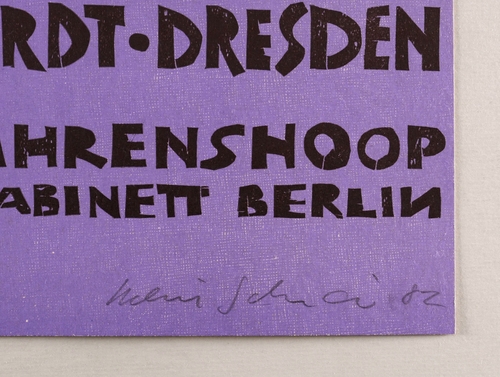 RDT•DRESDEN
AHRENSHOOP
ABINETT BERLIN
82